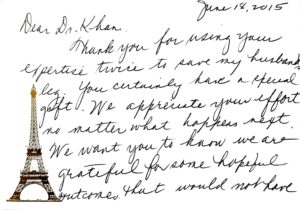 June 18, 2015
Dear Dr. Khan,
Thank you for using your
expertise twice to save my husband's
leg. You certainly have a special
gift. We appreciate your effort
no matter what happens next.
We want you to know we are
grateful for some hopeful
outcomes that would not have